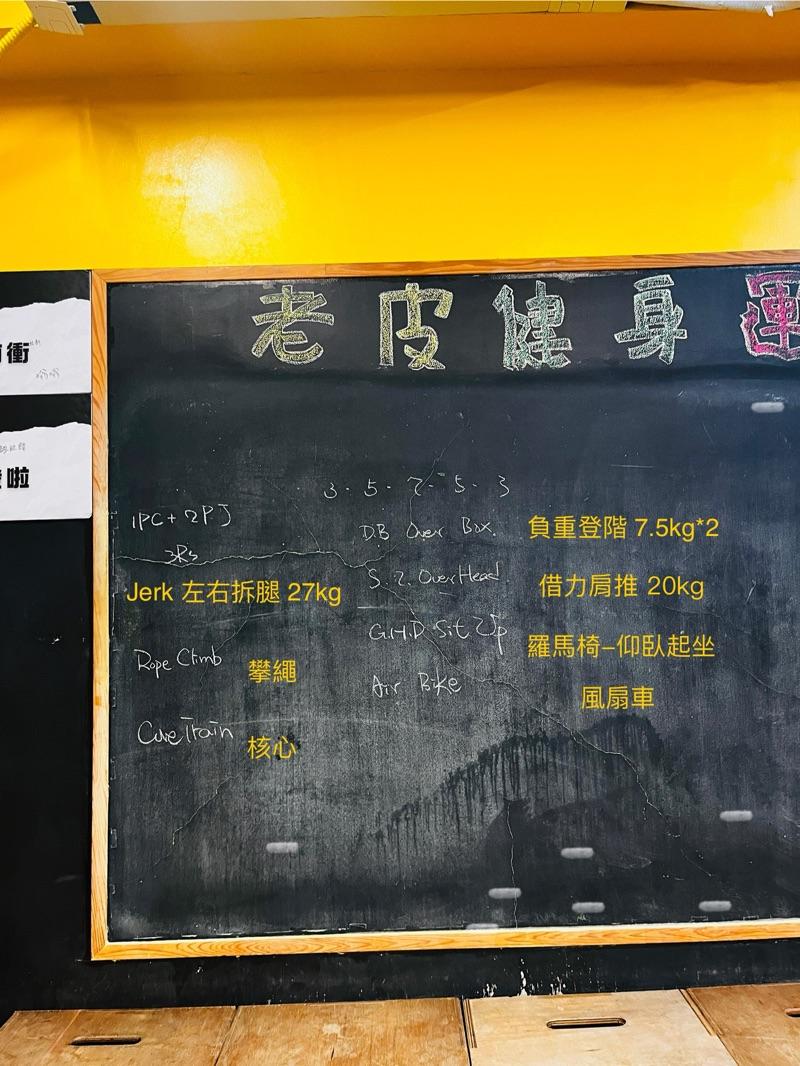 老皮健身運
衝
啦
1PC+2PJ
3Rs
Jerk 左右拆腿 27kg
Rope Climb
攀繩
Core Train
核心
3-5-7-5-3
DB Over Box
負重登階 7.5kg*2
S.2.OverHead
借力肩推 20kg
G.H.D Sit Up
羅馬椅–仰臥起坐
Air Bike
風扇車